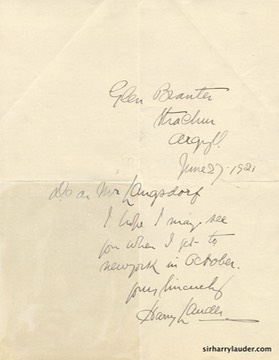 Glen Branter
Strachur
Argyll.
June 27-1921
Dear Mr Langsdorf
I hope I may see
you when I get to
newyork in October.
yours Sincerely
Harry Lauder
sirharrylauder.com